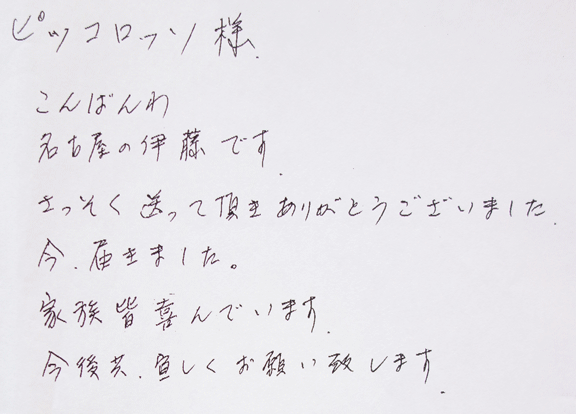 ピッコロッソ様.
こんばんわ
名古屋の伊藤です.
さっそく送って頂きありがとうございました.
今、届きました。
家族皆喜んでいます.
今後共、宜しくお願い致します.